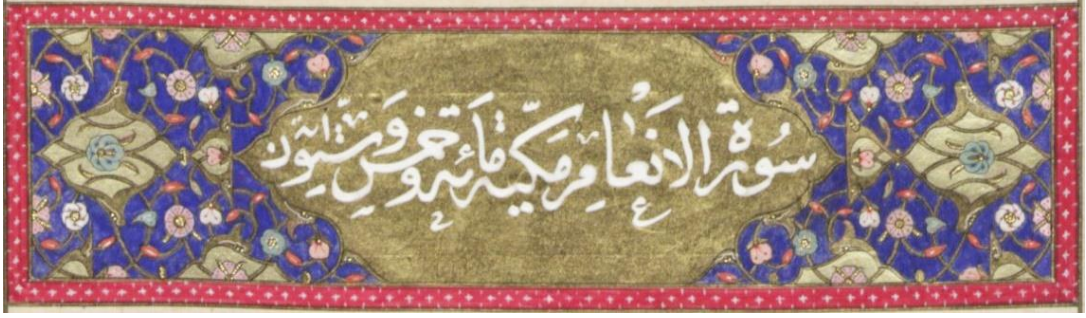 سُورَةُ الانْعَامِ مَكِّيَّه مَائَه وَخَمْسٌ وَسِتُّونَ اية